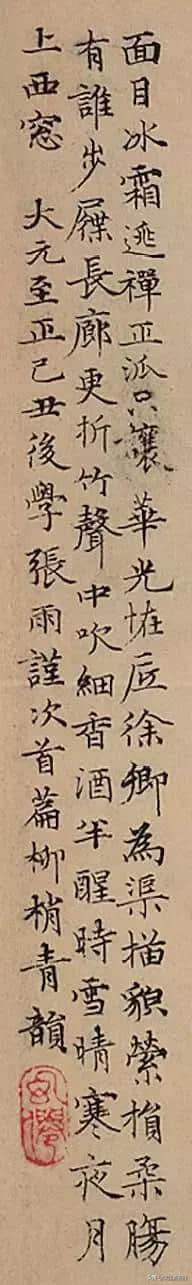 面目冰霜逃禪正派只讓華光恠底徐卿為渠描貌縈損柔腸
有誰步屧長廊更折竹聲中吹細香酒半醒時雪晴寒夜月
上西窓 大元至正己丑後學張雨謹次首篇柳梢青韻